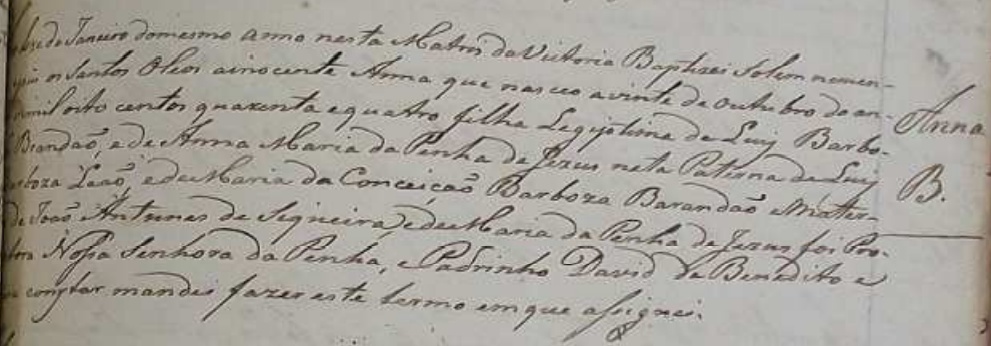 de Janeiro domesmo anno nesta Matris da Victoria Baptizei Solem nemen-
os Santos Oleos ainocente Anna que nasceo avinte de outubro do an-
mil oito centos quarenta equatro filha Legitima de Luiz Barbo-
Brandaõ, e de Anna Maria da Penha de Jezus neta Paterna de Luiz
Barboza Leaõ, e de Maria da Conceiçaõ Barboza Barandaõ eMater-
de Joaõ Antunes de Siqueira, e de Maria da Penha de Jezus foi Pro-
Nossa Senhora da Penha, e Padrinho David de Benedito e
constar mandei fazer este termo em que assignei.
Anna
B.